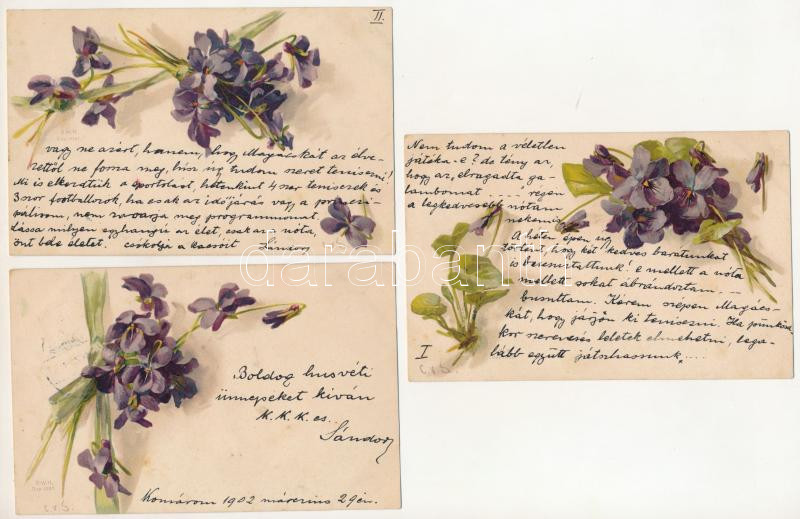 II.
vagy ne azért, hanem, hogy Magácskát az élve-
zettől ne fossza meg, hisz úgy tudom szeret teniszezni!
Mi is elkezdtük a sportolást, hetenkint 4 szer teniszezek és
3szor footballozok, ha csak az időjárás vagy a
nem zavarja meg programmomat.
Lássa milyen egyhangú az élet, csak az a nóta,
önt bele életet. csókolja a kacsóit Sándor
Nem tudom a véletlen
játéka-e? de tény az,
hogy az, elragadta ga-
lambomat .... régen
a legkedvesebb nótám
nekem is.
A héten épen úgy
történt, hogy két kedves barátunkat
is bemutattunk! e mellett a nóta
mellett sokat ábrándoztam....
busultam. Kérem szépen Magács-
kát, hogy járjon ki teniszezni. Ha pünkösd-
kor szerencsés leletek elmehetni, lega-
lább együtt játszhassunk....
I
C.v.S.
Boldog husvéti
ünnepeket kiván
K.K.K. es.
Sándor
Komárom 1902 március 29én.
C.v.S.
darabanth